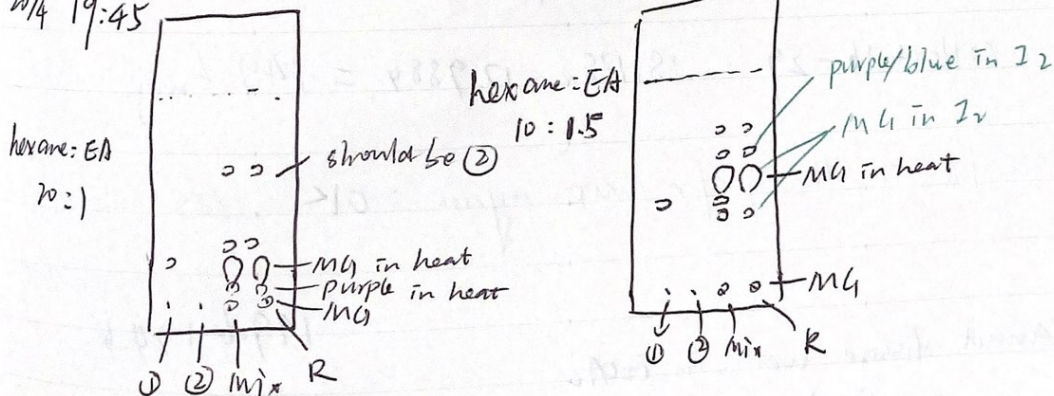 19:45
hexane: EA
20:1
should be ②
MG in heat
purple in heat
MG
① ② Mix R
hexane: EA
10:1.5
purple/blue in I2
MG in I2
MG in heat
MG
① ② Mix R